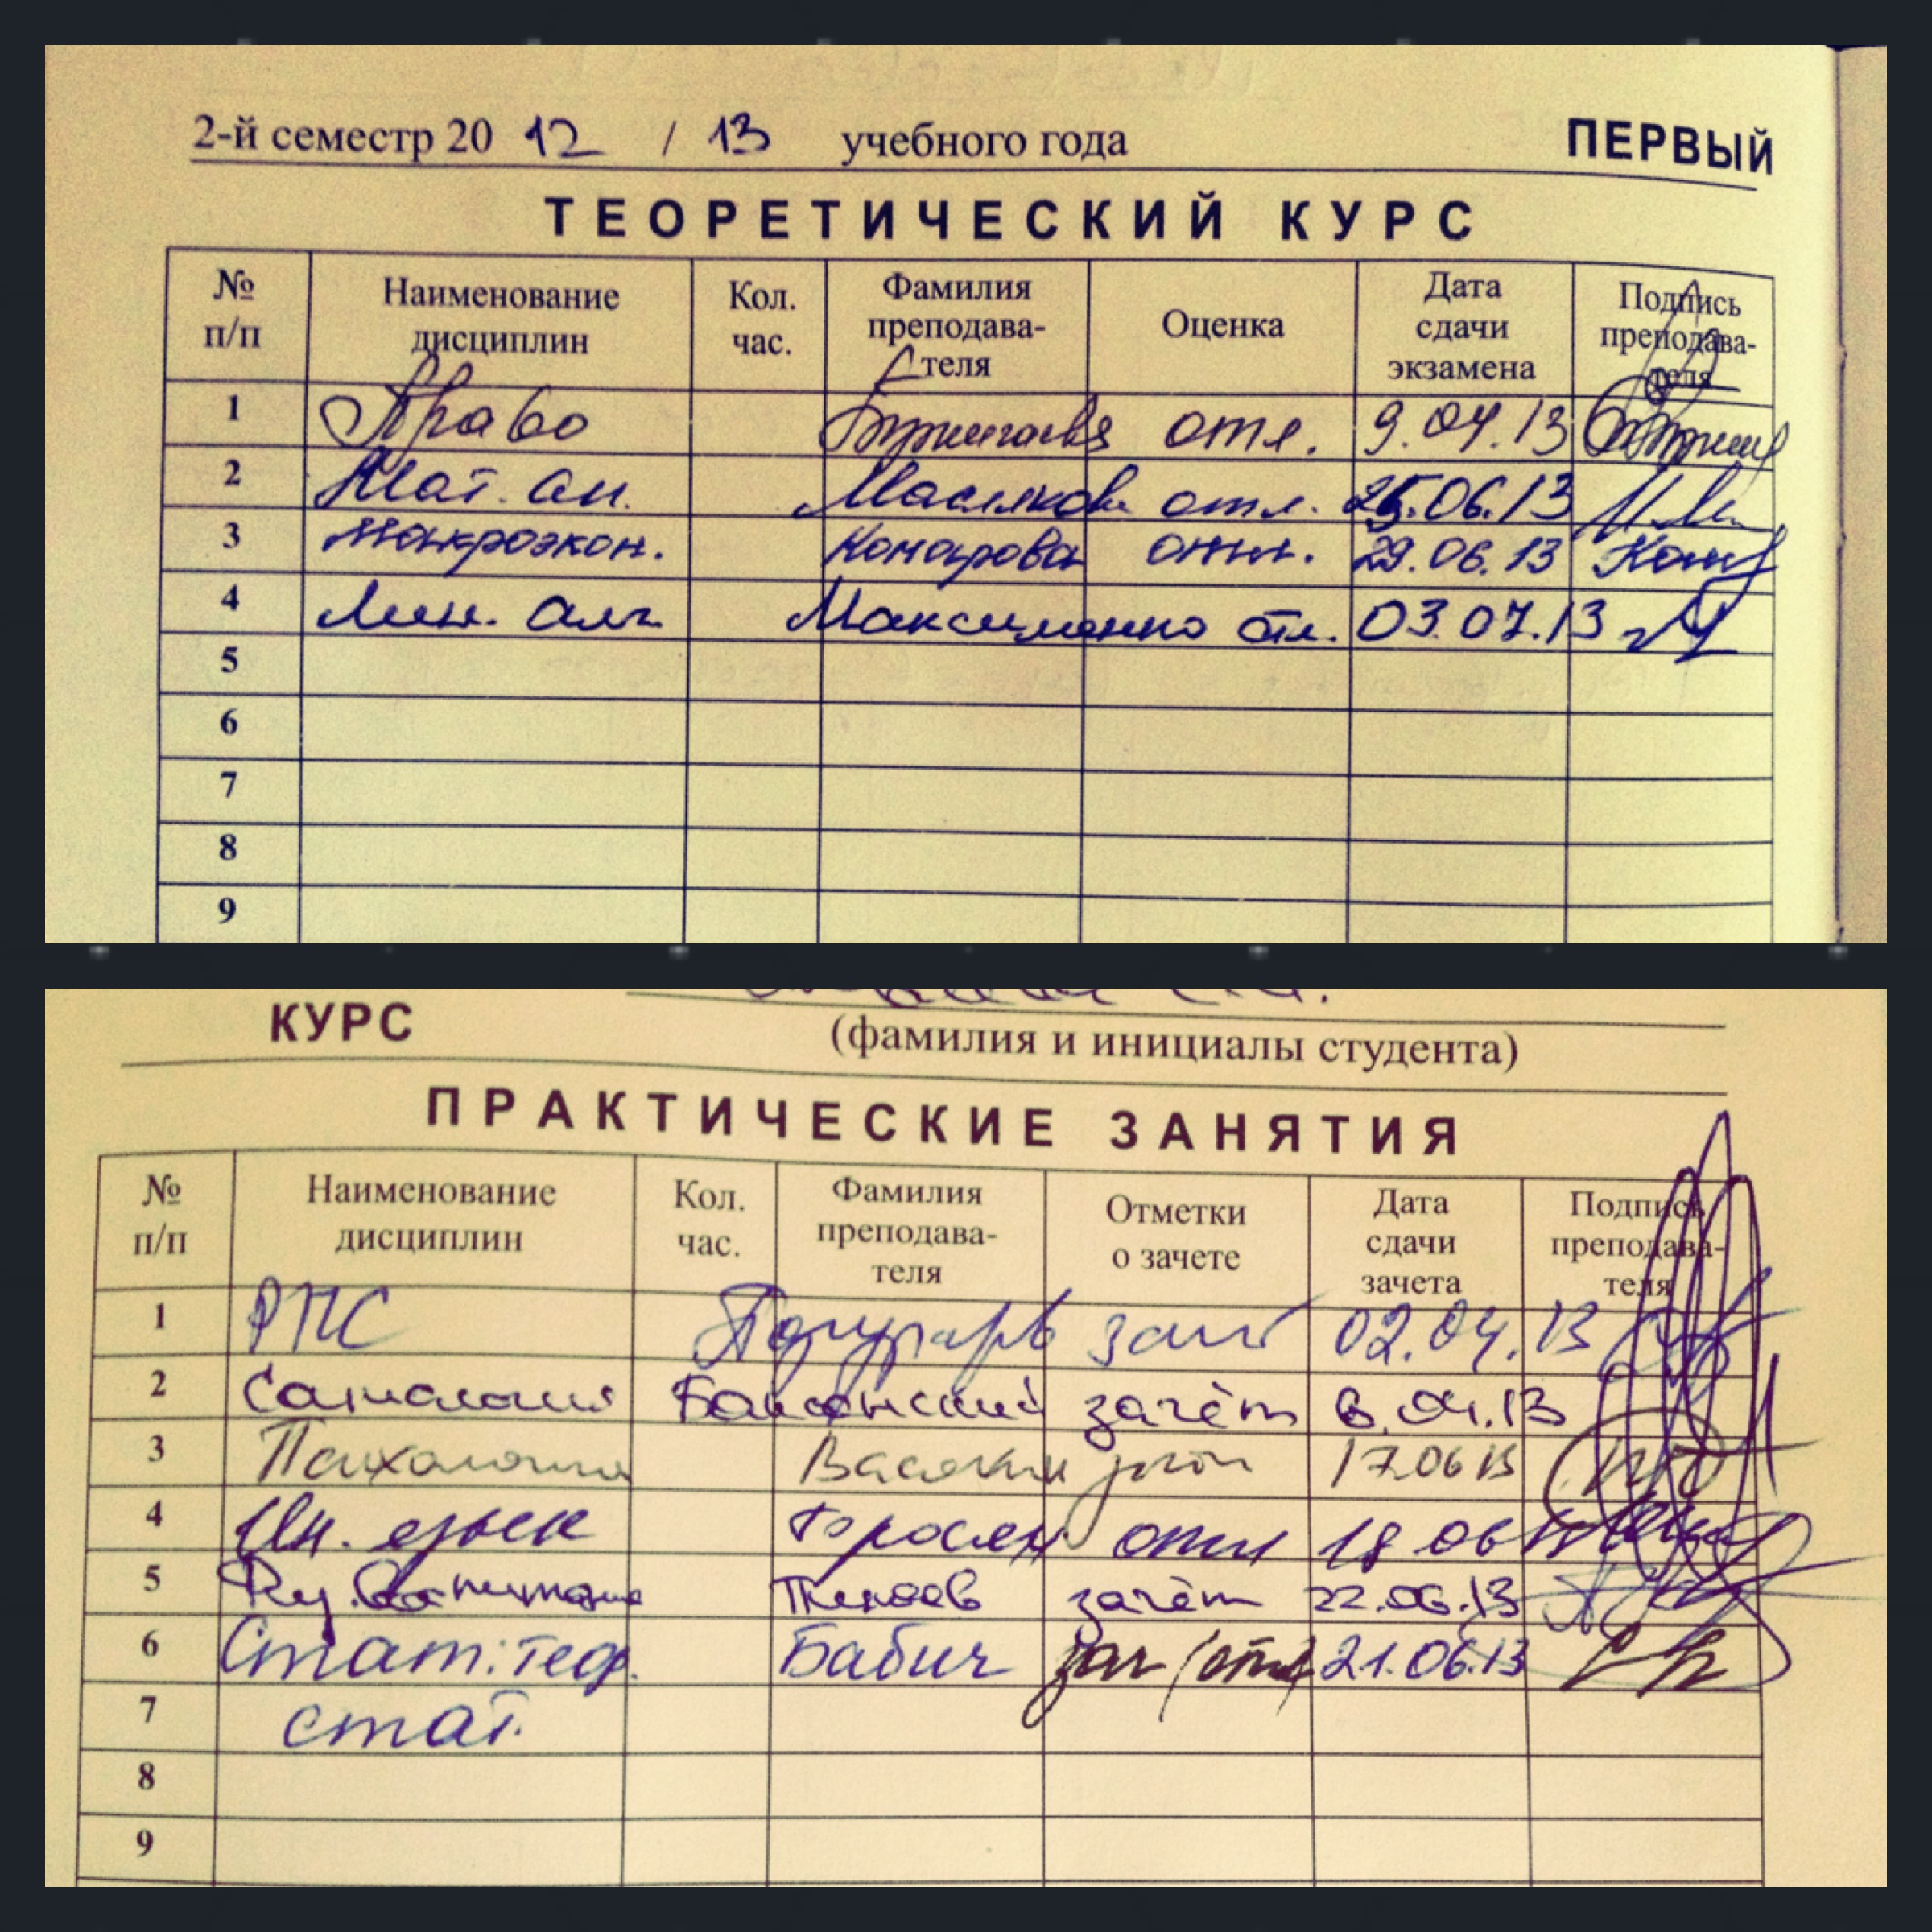 2-й семестр 20 12 / 13 учебного года ПЕРВЫЙ
ТЕОРЕТИЧЕСКИЙ КУРС
№ п/п Наименование дисциплин Кол. час. Фамилия преподава- теля Оценка Дата сдачи экзамена Подпись преподава- теля
1 Право отл. 9.04.13
2 Мат. ан. отл. .06.13
3 Макроэкон. Комарова отл. 29.06.13
4 Лин. алг. Максименко отл. 03.07.13
5
6
7
8
9
КУРС
(фамилия и инициалы студента)
ПРАКТИЧЕСКИЕ ЗАНЯТИЯ
№ п/п Наименование дисциплин Кол. час. Фамилия преподава- теля Отметки о зачете Дата сдачи зачета Подпись преподава- теля
1 РПС зач 02.04.13
2 Социология зачёт .04.13
3 Психология 17.06 13
4 Ин. язык отл 18.06
5 Физ. воспитание зачёт 22.06.13
6 Стат: теор. Бабич зач (отл) 21.06.13
7 стат.
8
9